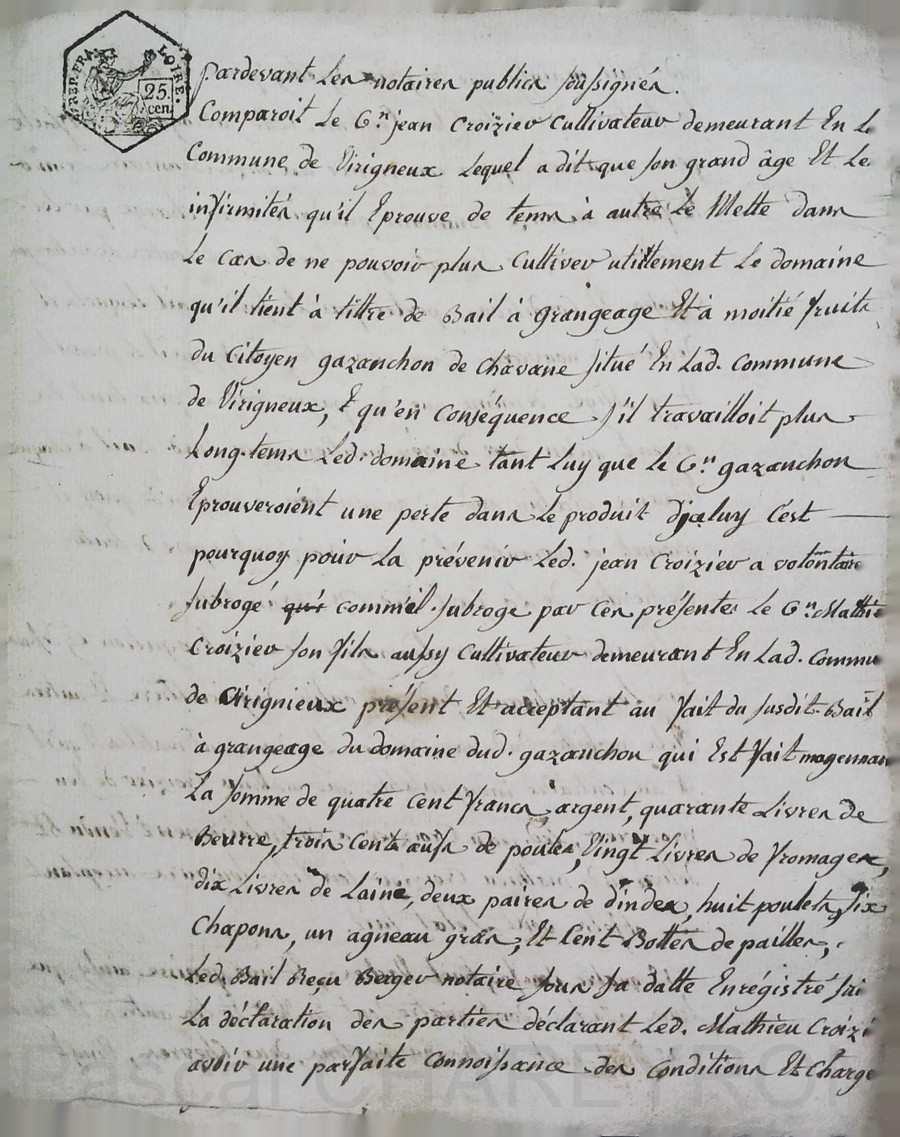 REP. FRA. LOIRE.
25. cen.
pardevant les notaires publics soussignés.
Comparoit Le C.n jean Croizier Cultivateur demeurant En L
Commune de Virigneux Lequel a dit que son grand âge Et Le
infirmités qu'il Eprouve de tems à autre Le Mette dans
Le cas de ne pouvoir plus Cultiver utillement Le domaine
qu'il tient à tiltre de Bail à grangeage Et à moitié fruits
du Citoyen gazanchon de chavane situé En Lad. Commune
de Virigneux, & qu'en conséquence s'il travailloit plus
Long-tems Led. domaine tant Luy que le C.n gazanchon
Eprouveroient une perte dans Le produit d'jceluy C'est
pourquoy pour La prévenir Led. jean Croizier a volontaire
subrogé qui comme il subroge par ces présentes Le C.n Mathie
Croizier son fils aussy Cultivateur demeurant En Lad. Commu
de Virignieux présent Et acceptant au fait du susdit Bail
à grangeage du domaine dud. gazanchon qui Est fait mogennan
La somme de quatre Cent francs argent, quarante Livres de
Beurre, trois Cents œufs de poules, Vingt Livres de fromages,
dix Livres de Laine, deux paires de dindes, huit poulets, six
Chapons, un agneau gras, Et Cent Bottes de pailles,
Led. Bail Reçu Berger notaire sous sa datte Enrégistré sui
La déclaration des parties déclarant Led. Mathieu Croizi
avoir une parfaite connoissance des Conditions Et Charge